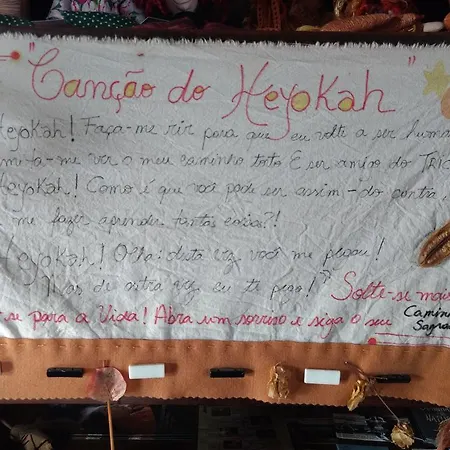 "Canção do Heyokah"
Heyokah! Faça-me rir para que eu volte a ser huma
me ver o meu caminho torto E ser amigo do
Heyokah! Como é que você pode ser assim-do contra,
me fazer aprender tantas coisas?!
Heyokah! Olha: desta vez você me pegou!
Mas de outra vez eu te pego!"
Solte-se mais
se para a Vida! Abra um sorriso e siga o seu Caminh
Sagra